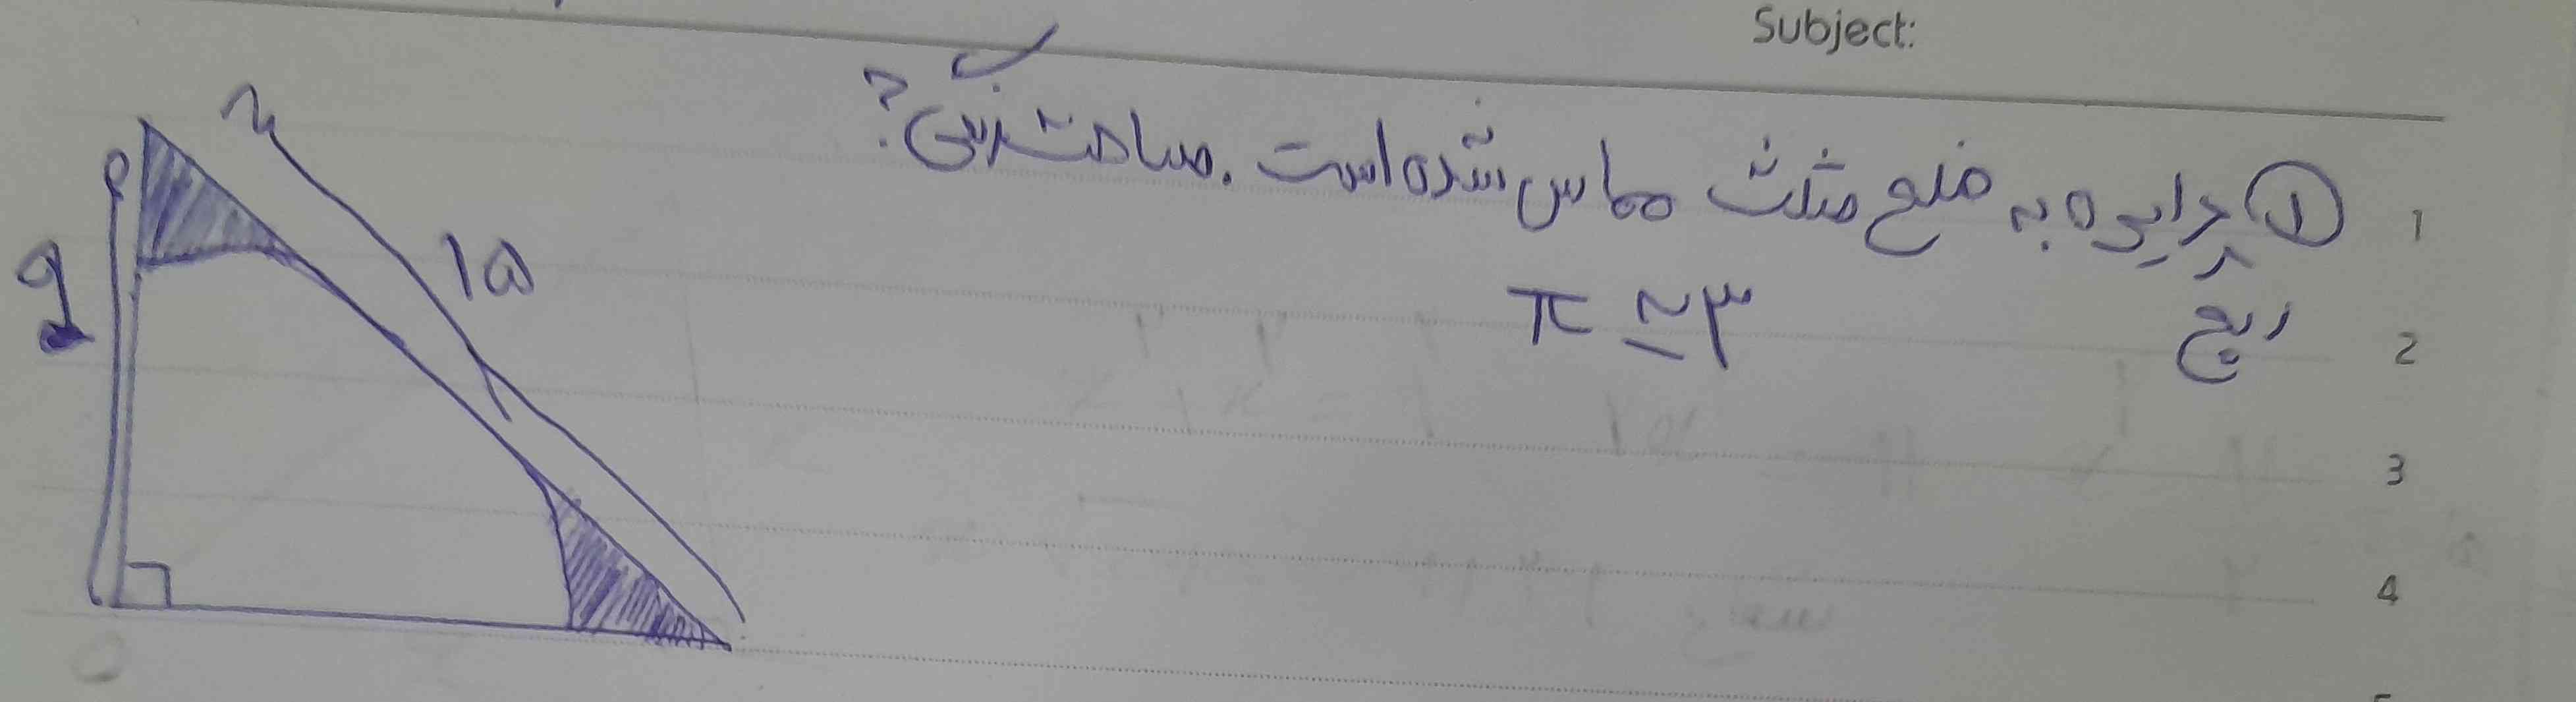 Subject:
1 ① ربع دایره به ضلع مثلث مماس شده است. مساحت رنگی؟
2 π ≃ ۳
3
4
۹
۱۵